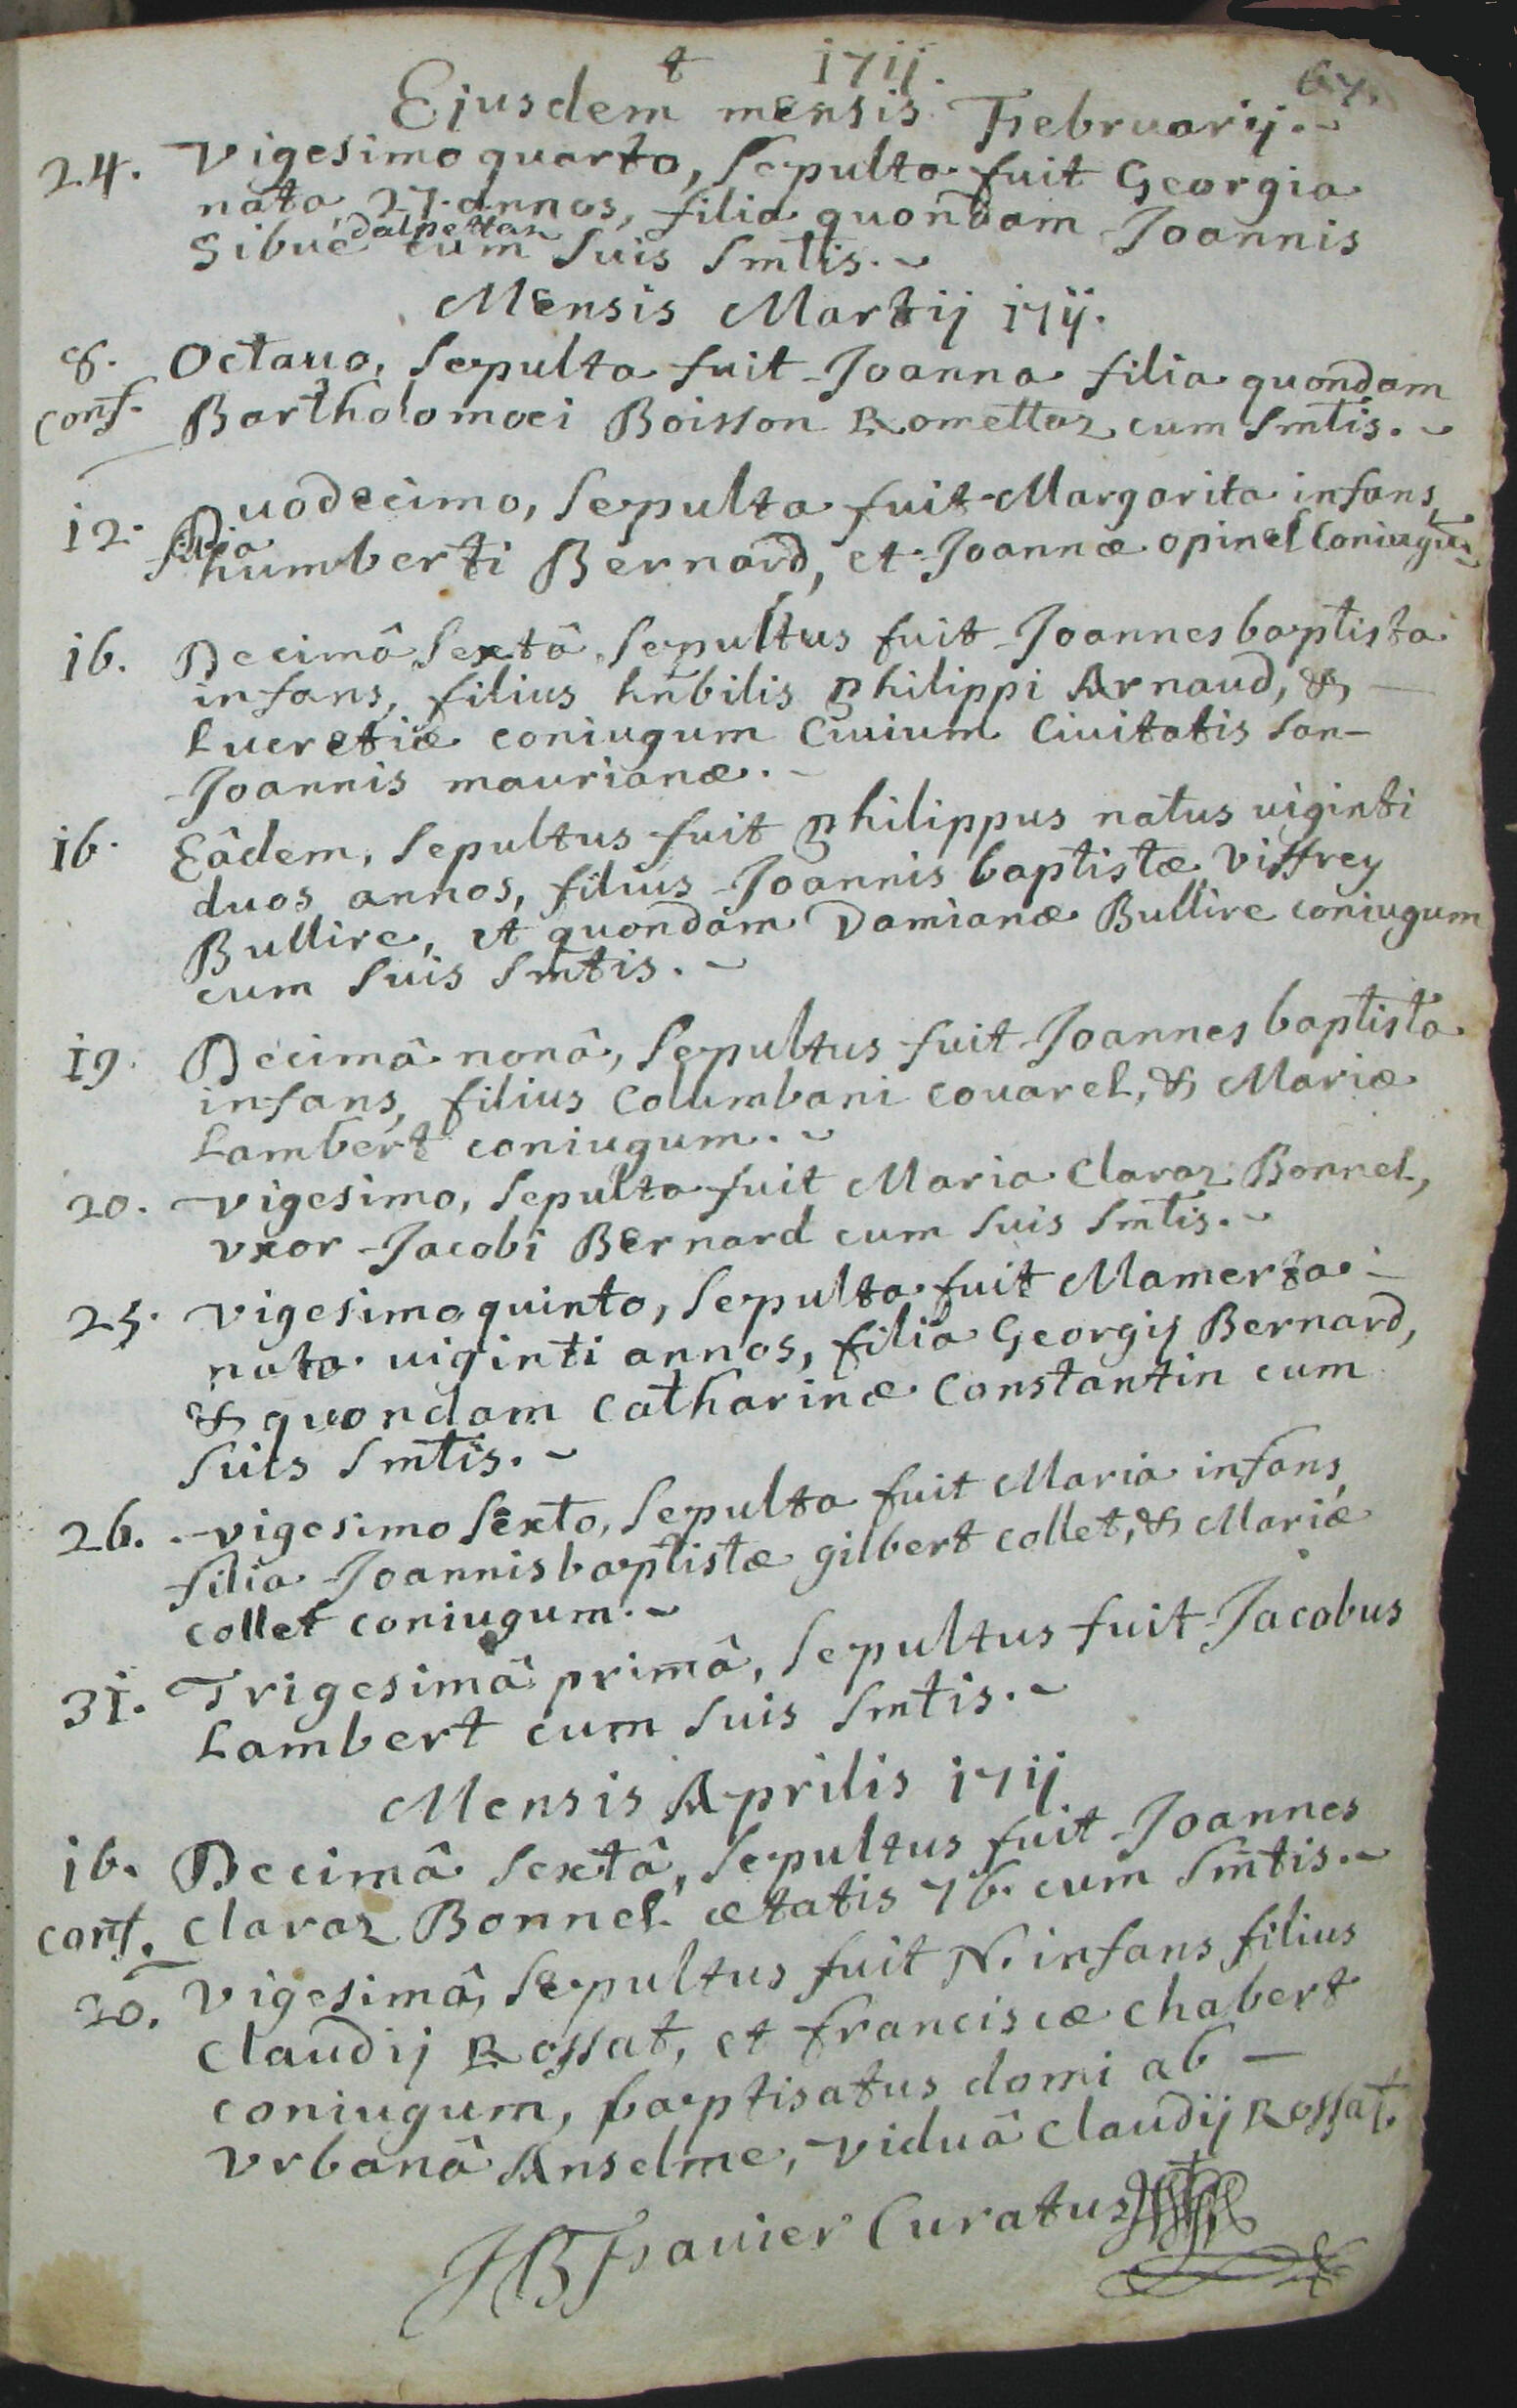 t 1711. 67.
Ejusdem mensis Februarij.~
24. Vigesimo quarto, Sepulta fuit Georgia
nata 27. annos, filia quondam Joannis
Sibué dalpettaz cum Suis Smtis.~
Mensis Martij 1711.
8. Octauo, Sepulta fuit Joanna filia quondam
conf. Bartholomoei Boisson Romettaz cum Smtis.~
12. Duodecimo, Sepulta fuit Margarita infans,
filia humberti Bernard, et Joannæ opinel Coniugū.~
16. Decimâ Sextâ, Sepultus fuit Joannes baptista
infans, filius hn̄bilis Philippi Arnaud, & —
Lucretiæ coniugum Ciuium Ciuitatis San-
Joannis maurianæ.~
16. Eâdem, Sepultus fuit Philippus natus uiginti
duos annos, filius Joannis baptistæ Viffrey
Bullire, et quondam Damianæ Bullire coniugum
cum Suis Smtis.~
19. Decimâ nonâ, Sepultus fuit Joannes baptista
infans, filius Columbani couarel, & Mariæ
Lambert coniugum.~
20. Vigesimo, Sepulta fuit Maria Claraz Bonnel,
vxor Jacobi Bernard cum Suis Smtis.~
25. Vigesimo quinto, Sepulta fuit Mamerta —
nata uiginti annos, filia Georgij Bernard,
& quondam Catharinæ Constantin cum
Suis Smtis.~
26. Vigesimo Sexto, Sepulta fuit Maria infans,
filia Joannis baptistæ gilbert collet, & Mariæ
collet coniugum.~
31. Trigesimâ primâ, Sepultus fuit Jacobus
Lambert cum Suis Smtis.~
Mensis Aprilis 1711
16. Decimâ Sextâ, Sepultus fuit Joannes
conf. Claraz Bonnel ætatis 76. cum Smtis.~
20. Vigesimâ, Sepultus fuit N. infans filius
Claudij Rossat, et franciscæ chabert
coniugum, baptisatus domi ab —
Vrbanâ Anselme, viduâ Claudij Rossat.
JB Favier Curatus